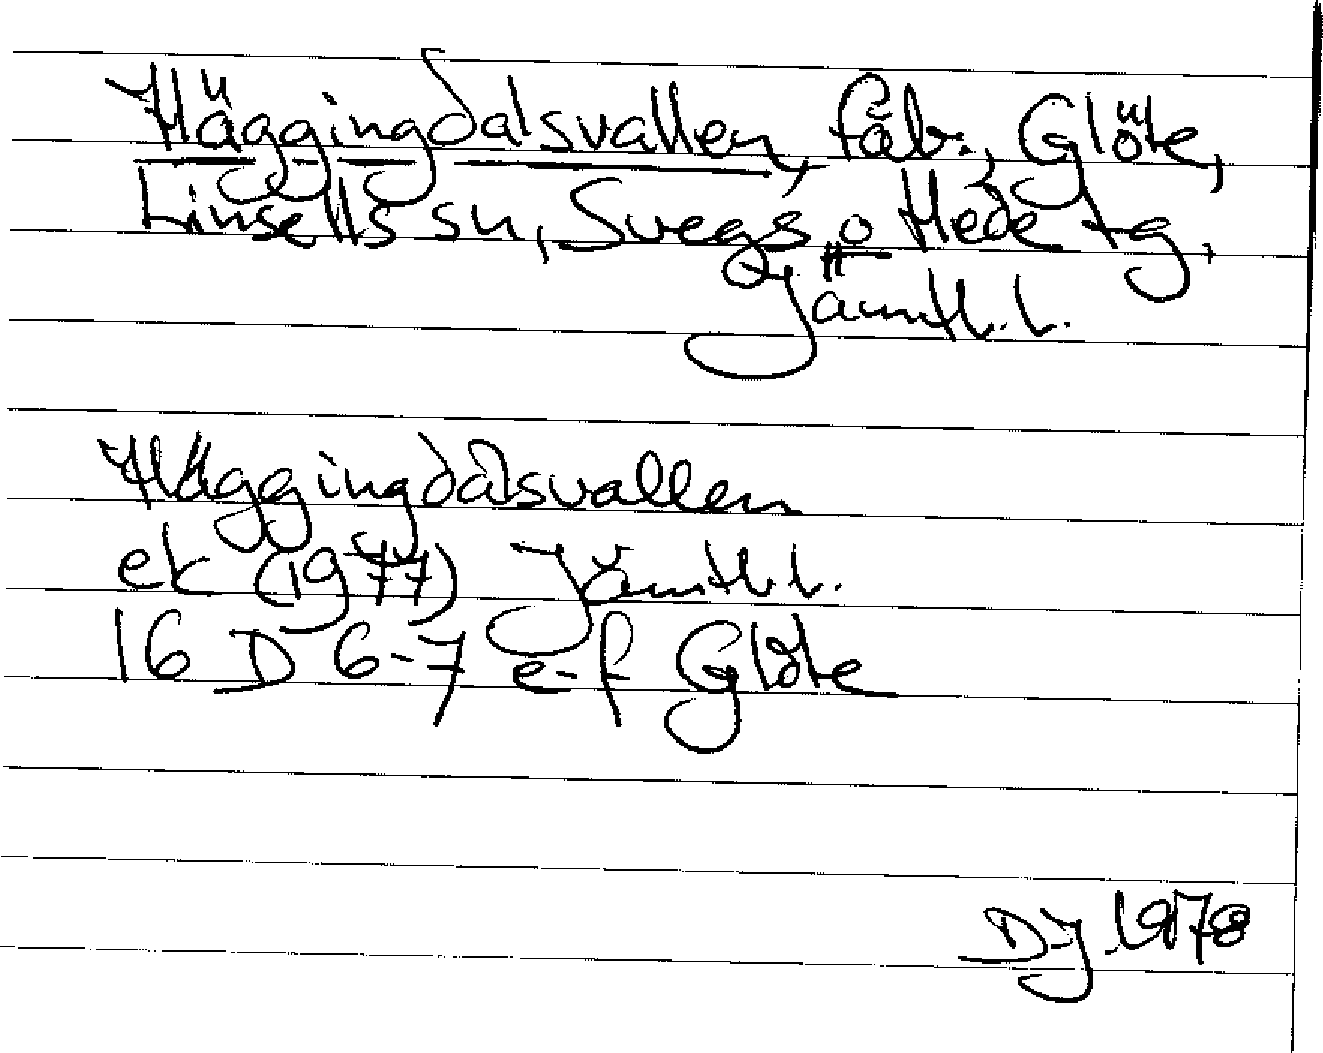 Häggingdalsvallen, fäb., Glöte,
Linsells sn, Svegs o Hede tg,
Jämtl. l.
Häggingdalsvallen
ek (1977) Jämtl. l.
16 D 6-7 e-f Glöte
DJ 1978